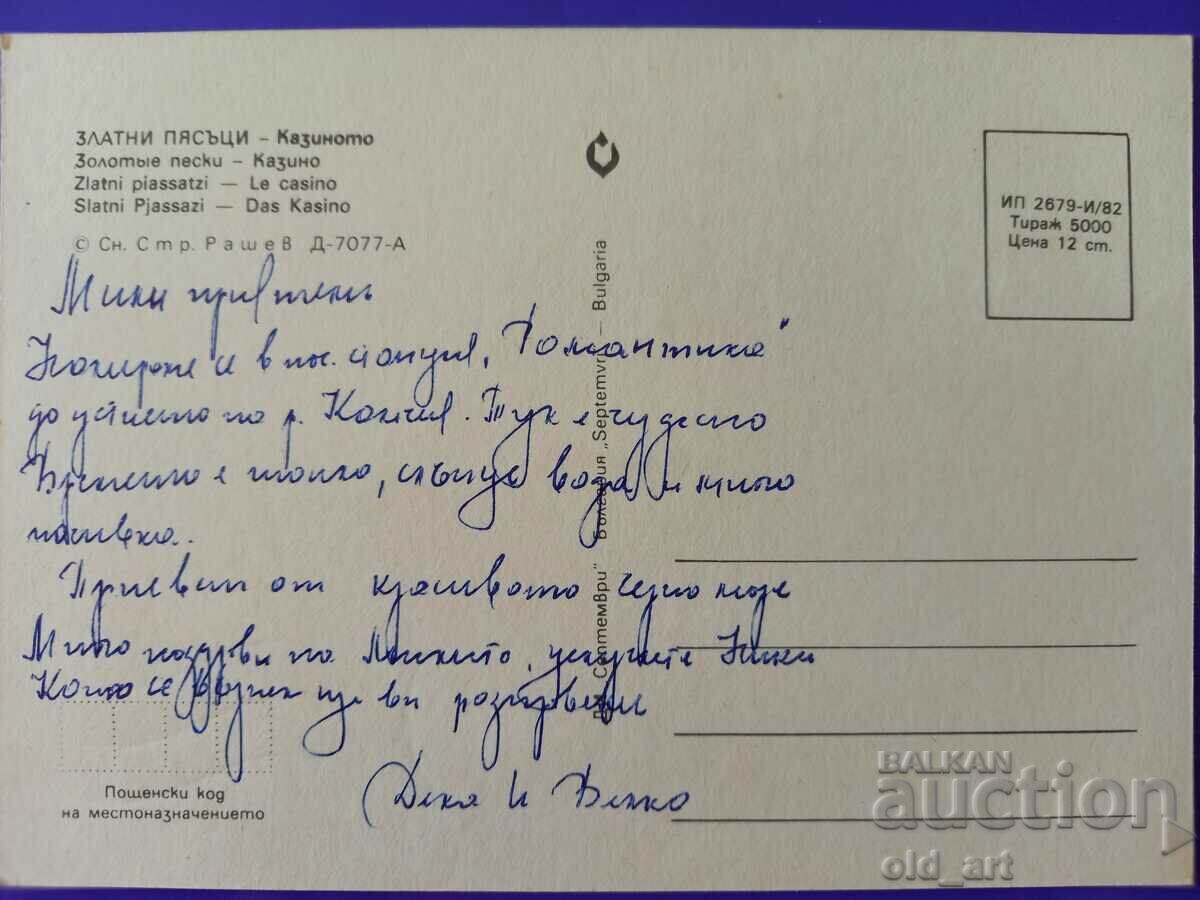 ЗЛАТНИ ПЯСЪЦИ – Казиното
Золотые пески – Казино
Zlatni piassatzi — Le casino
Slatni Pjassazi — Das Kasino
© Сн. Стр. Рашев Д-7077-А
ИП 2679-И/82
Тираж 5000
Цена 12 ст.
Мили приятели
в „Романтика"
до устието на р. Камчия. Тук е чудесно
Времето е топло, слънце вода и много
почивка.
Привет от красивото Черно море
Много поздрави на
Като се върнем ще ви разправяме
и Велко
ДИ „Септември" България „Septemvri" — Bulgaria
Пощенски код
на местоназначението
BALKAN
auction
old_art